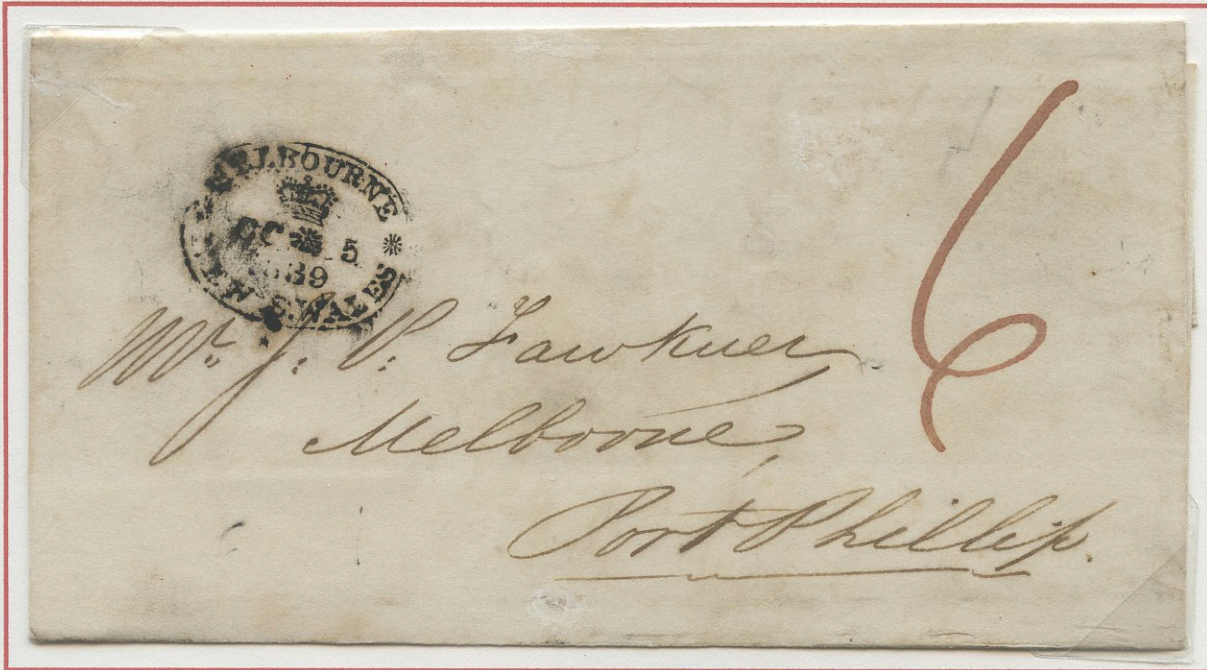 MELBOURNE
OC 5
1839
NEW S. WALES
6
Mr. J. P. Fawkner
Melborne,
Port Phillip.